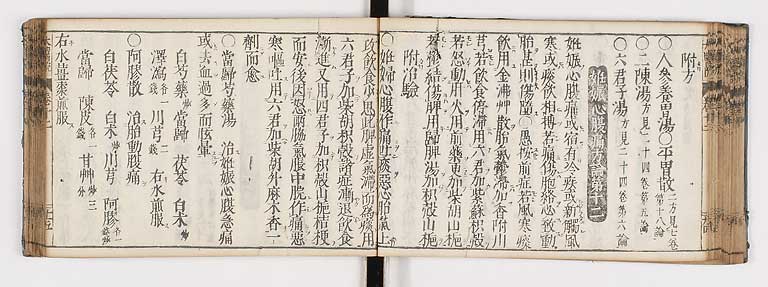 附方
○人參養胃湯○平胃散二方見七卷第十八論
○二陳湯方見二十四卷第五論
○六君子湯方見二十四卷第六論
妊娠心腹痛方論第十二
妊娠心腹痛或宿有冷疾或新觸風
寒或痰飲相搏若痛傷胞絡必致動
胎甚則傷墮○愚按前症若風寒痰
飲用金沸草散胎氣鬱滯加香附川
芎若飲食停滯用六君加柴蘇枳殼
若怒動肝火用前藥更加柴胡山梔
若鬱結傷脾用歸脾湯加枳殼山梔
附治驗
○一妊婦心腹作痛吐痰惡心胎氣上
攻飲食少思此脾虛氣滯而為痰用
六君子加柴胡枳殼諸症漸退飲食
漸進又用四君子加枳殼山梔桔梗
而安後因怒兩脇氣脹中脘作痛惡
寒嘔吐用六君加柴胡升麻木香一
劑而愈
○當歸芍藥湯 治妊娠心腹急痛
或去血過多而眩暈
白芍藥 當歸 茯苓 白朮
澤瀉各一錢 川芎二錢 右水煎服
○阿膠散 治胎動腹痛
白茯苓 白朮 川芎 阿膠各一
當歸 陳皮各一錢 甘艸三分
右水薑棗煎服